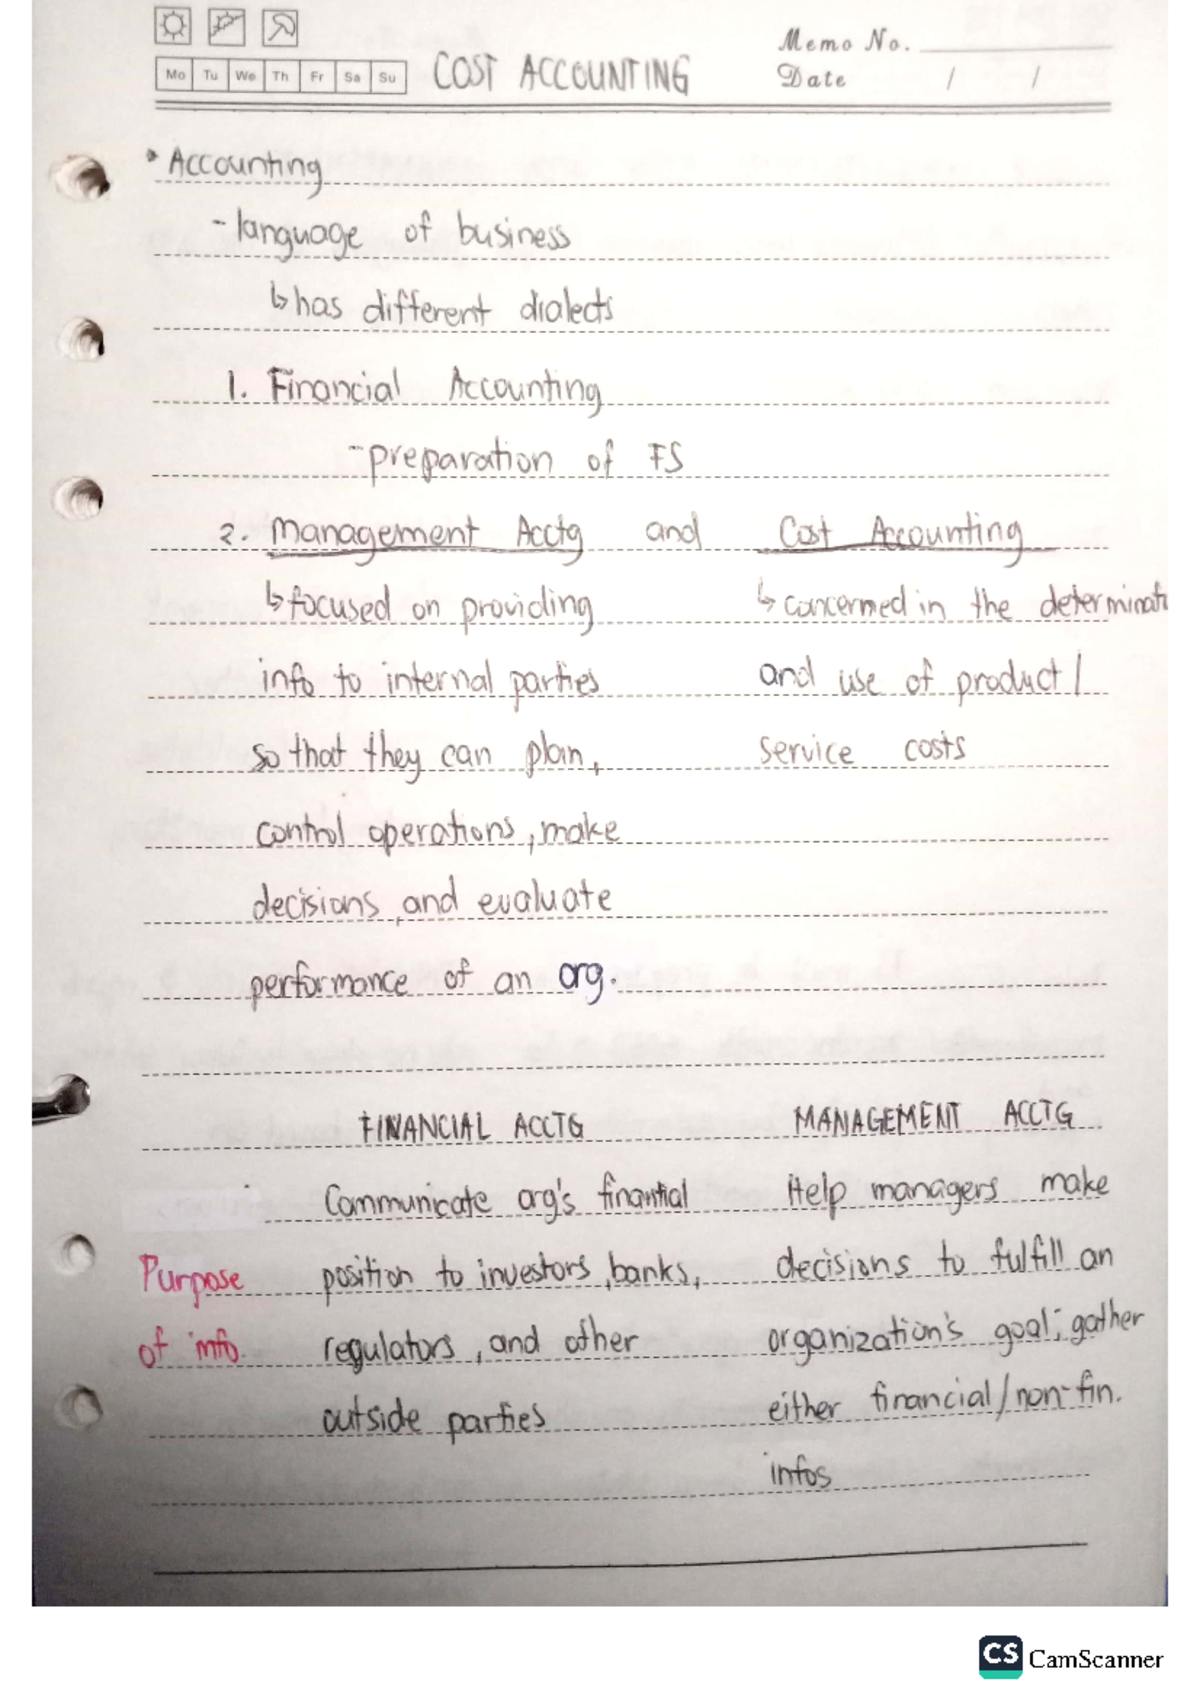 Memo No.
Mo Tu We Th Fr Sa Su COST ACCOUNTING Date / /
• Accounting
- language of business
↳ has different dialects
1. Financial Accounting
- preparation of FS
2. Management Acctg and Cost Accounting
↳ focused on providing ↳ concerned in the determinati
info to internal parties and use of product /
so that they can plan, service costs
control operations, make
decisions, and evaluate
performance of an org.
FINANCIAL ACCTG MANAGEMENT ACCTG
Communicate org's finantial Help managers make
Purpose position to investors, banks, decisions to fulfill an
of info. regulators, and other organization's goal; gather
outside parties either financial/non-fin.
infos
CS CamScanner